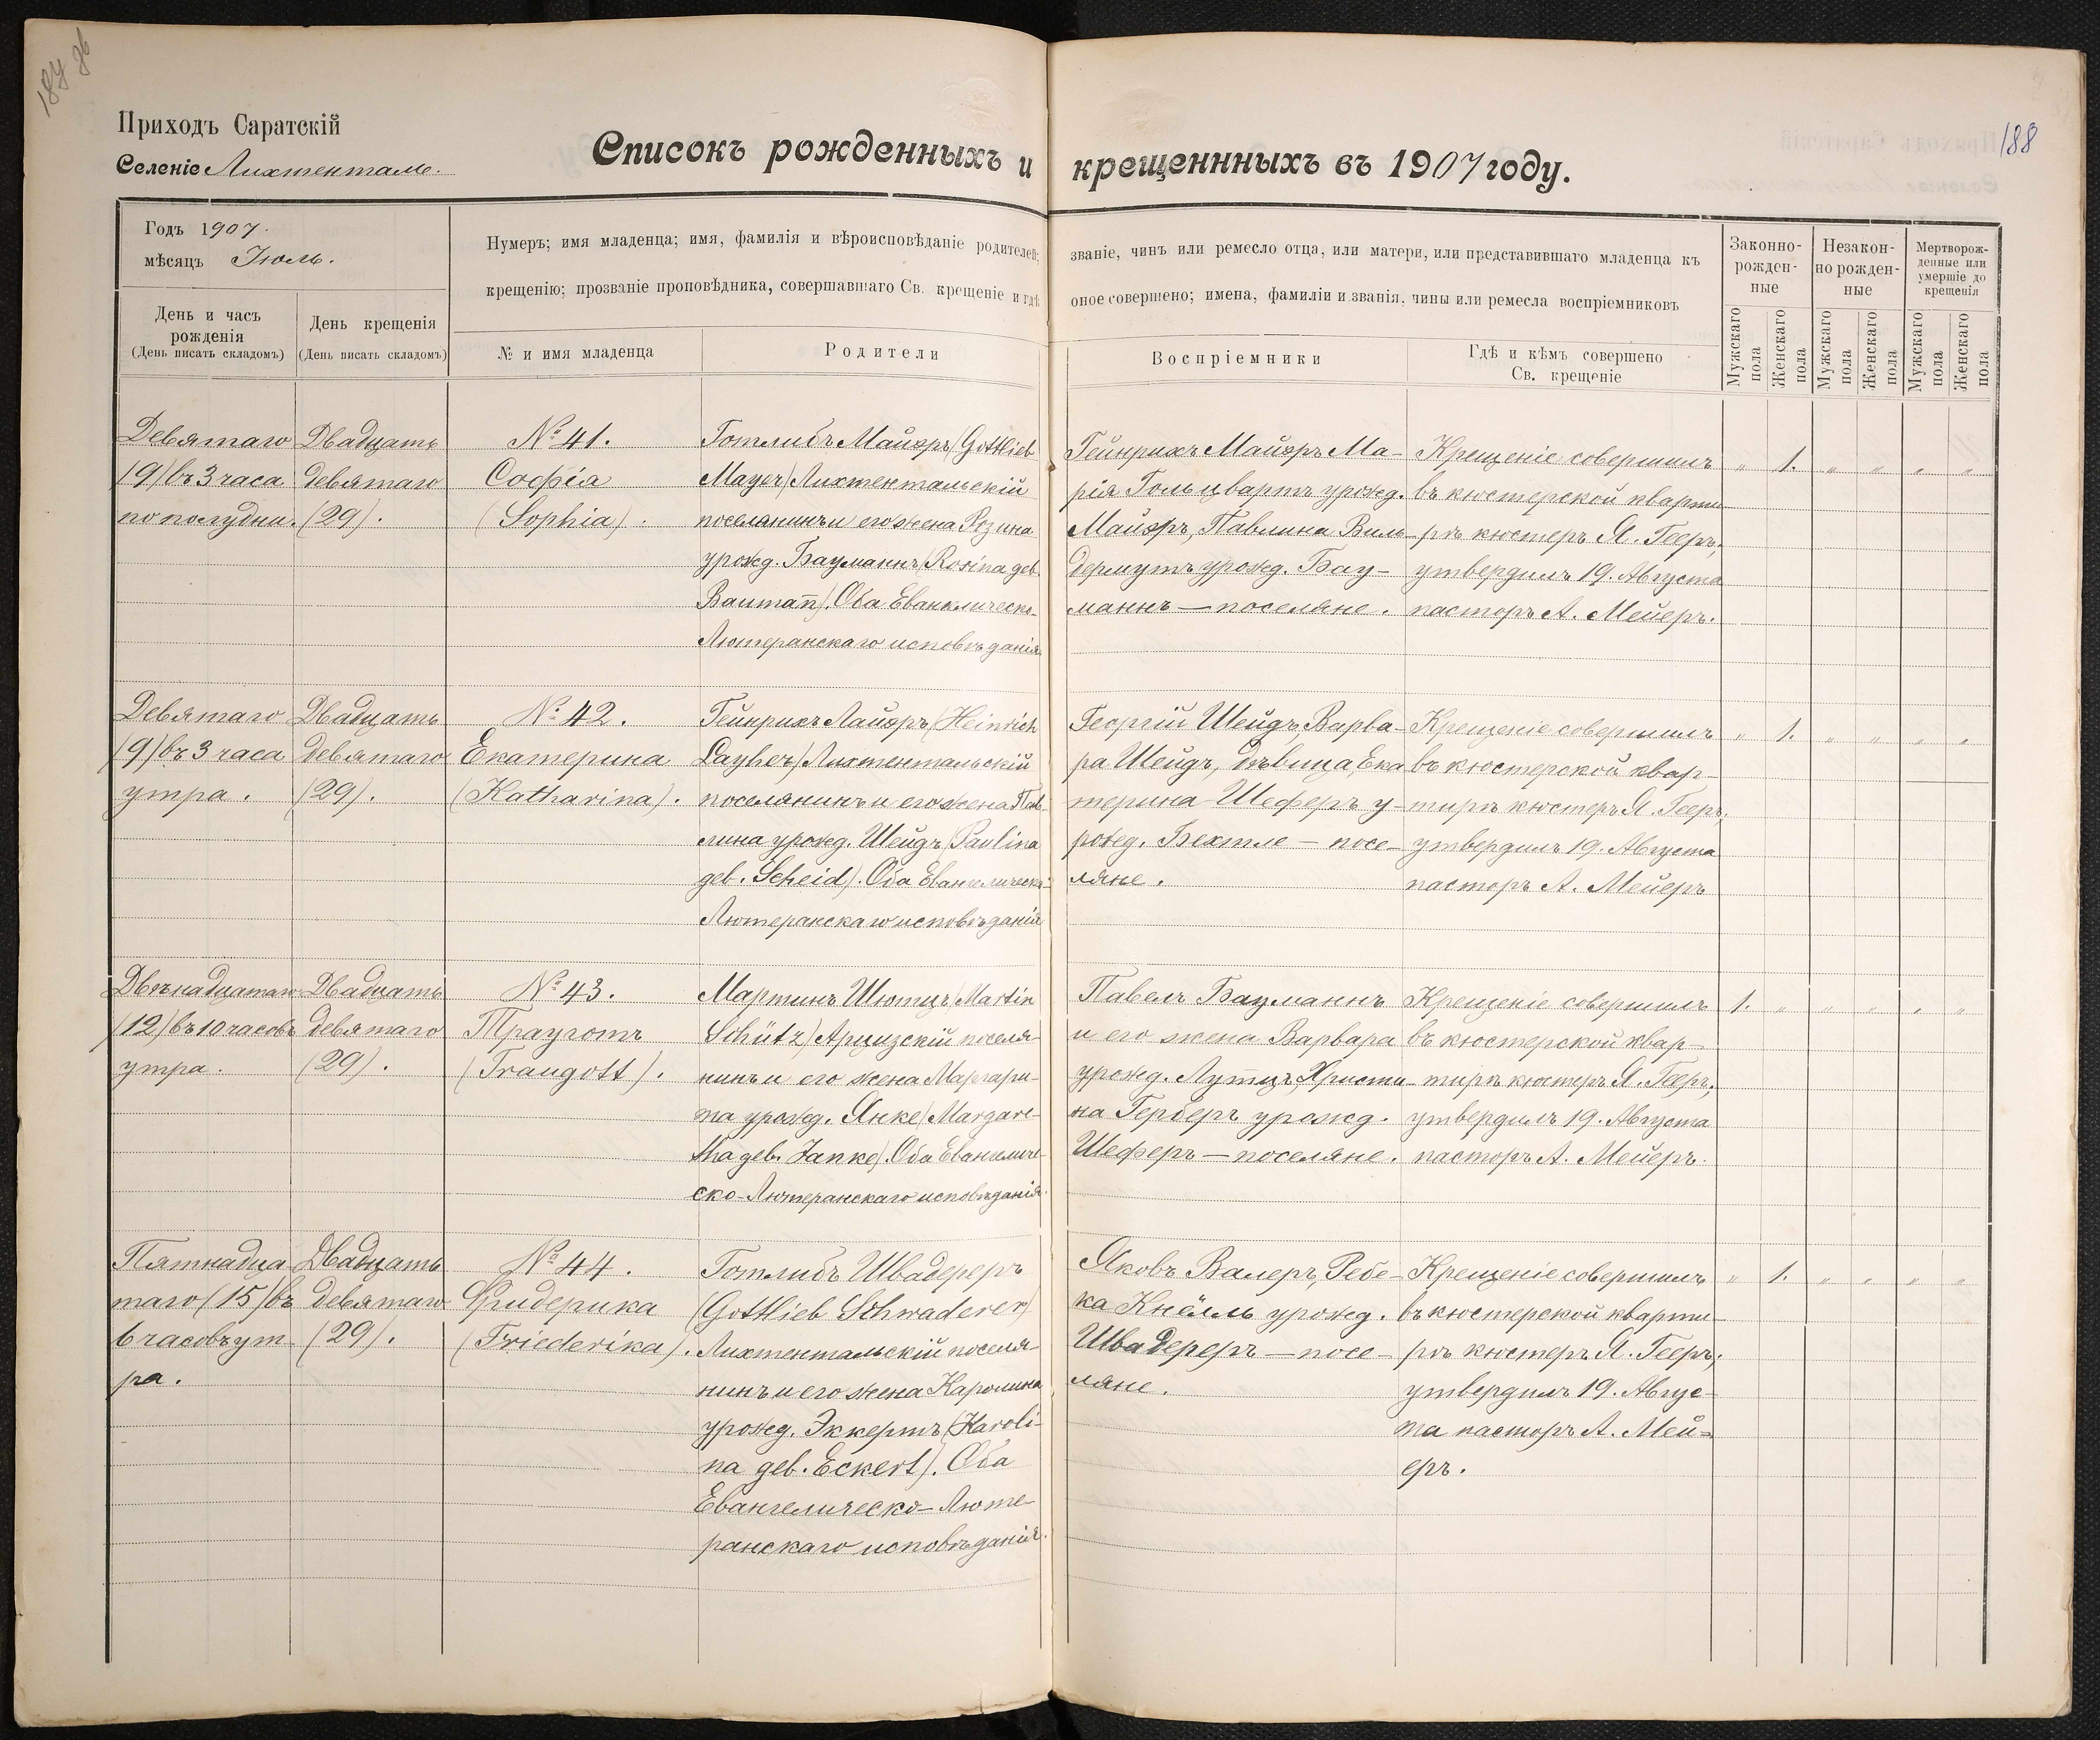 187 об
188
Приходъ Саратскій
Селеніе Лихтенталь.
Списокъ рожденныхъ и крещеннныхъ въ 1907 году.
Годъ 1907.
мѣсяцъ Іюль.
Нумеръ; имя младенца; имя, фамилія и вѣроисповѣданіе родителей; званіе, чинъ или ремесло отца, или матери, или представившаго младенца къ
крещенію; прозваніе проповѣдника, совершавшаго Св. крещеніе и гдѣ оное совершено; имена, фамиліи и званія, чины или ремесла воспріемниковъ
Законно-
рожден-
ные
Незакон-
но рожден-
ные
Мертворож-
денные или
умершіе до
крещенія
День и часъ
рожденія
(День писать складомъ)
День крещенія
(День писать складомъ)
№ и имя младенца
Родители
Воспріемники
Гдѣ и кѣмъ совершено
Св. крещеніе
Мужскаго
пола
Женскаго
пола
Мужскаго
пола
Женскаго
пола
Мужскаго
пола
Женскаго
пола
Девятаго
(9) въ 3 часа
по полудни.
Двадцать
девятаго
(29).
№ 41.
Софія
(Sophia).
Готлибъ Майэръ (Gottlieb
Mayer) Лихтентальскій
поселянинъ и его жена Розина
урожд. Бауманнъ (Rosina geb.
Baumañ). Оба Еванглическо-
Лютеранскаго исповѣданія
Гейнрихъ Майэръ Ма-
рія Гольцвартъ урожд.
Майэръ, Павлина Виль-
дермутъ урожд. Бау-
маннъ — поселяне.
Крещеніе совершилъ
въ кюстерской кварти
рѣ кюстеръ Я. Гееръ,
утвердилъ 19. Августа
пасторъ А. Мейеръ.
" 1. " " " "
Девятаго
(9) въ 3 часа
утра.
Двадцать
девятаго
(29).
№ 42.
Екатерина
(Katharina).
Гейнрихъ Лайэръ (Heinrich
Layher) Лихтентальскій
поселянинъ и его жена Пав-
лина урожд. Шейдъ (Paulina
geb. Scheid). Оба Евангелическо-
Лютеранскаго исповѣданія
Георгій Шейдъ, Варва-
ра Шейдъ, дѣвица, Ека
терина Шеферъ у-
рожд. Бехтле — посе-
ляне.
Крещеніе совершилъ
въ кюстерской квар-
тирѣ кюстеръ Я. Гееръ,
утвердилъ 19. Августа
пасторъ А. Мейеръ
" 1. " " " "
Двѣнадцатаго
(12) въ 10 часовъ
утра.
Двадцать
девятаго
(29).
№ 43.
Траугот
(Traugott).
Мартинъ Шютцъ (Martin
Schütz) Арцизскій поселя-
нинъ и его жена Маргари-
та урожд. Янке (Margare-
tha geb. Janke). Оба Евангеличе-
ско-Лютеранскаго исповѣданія.
Павелъ Бауманнъ
и его жена Варвара
урожд. Лутцъ, Христи-
на Герберъ урожд.
Шеферъ — поселяне.
Крещеніе совершилъ
въ кюстерской квар-
тирѣ кюстеръ Я. Гееръ;
утвердилъ 19. Августа
пасторъ А. Мейеръ.
1. " " " " "
Пятнадца
таго (15) въ
6 часовъ ут-
ра.
Двадцать
девятаго
(29).
№ 44.
Фридерика
(Friederika).
Готлибъ Швадереръ
(Gottlieb Schwaderer)
Лихтентальскій поселя-
нинъ и его жена Каролина
урожд. Эккертъ (Karoli-
na geb. Eckert). Оба
Евангелическо-Люте-
ранскаго исповѣданія.
Яковъ Валеръ, Ребе-
ка Кнёлль урожд.
Швадереръ — посе-
ляне.
Крещеніе совершилъ
въ кюстерской кварти-
рѣ кюстеръ Я. Гееръ;
утвердилъ 19. Авгус-
та пасторъ А. Мей-
еръ.
" 1. " " " "